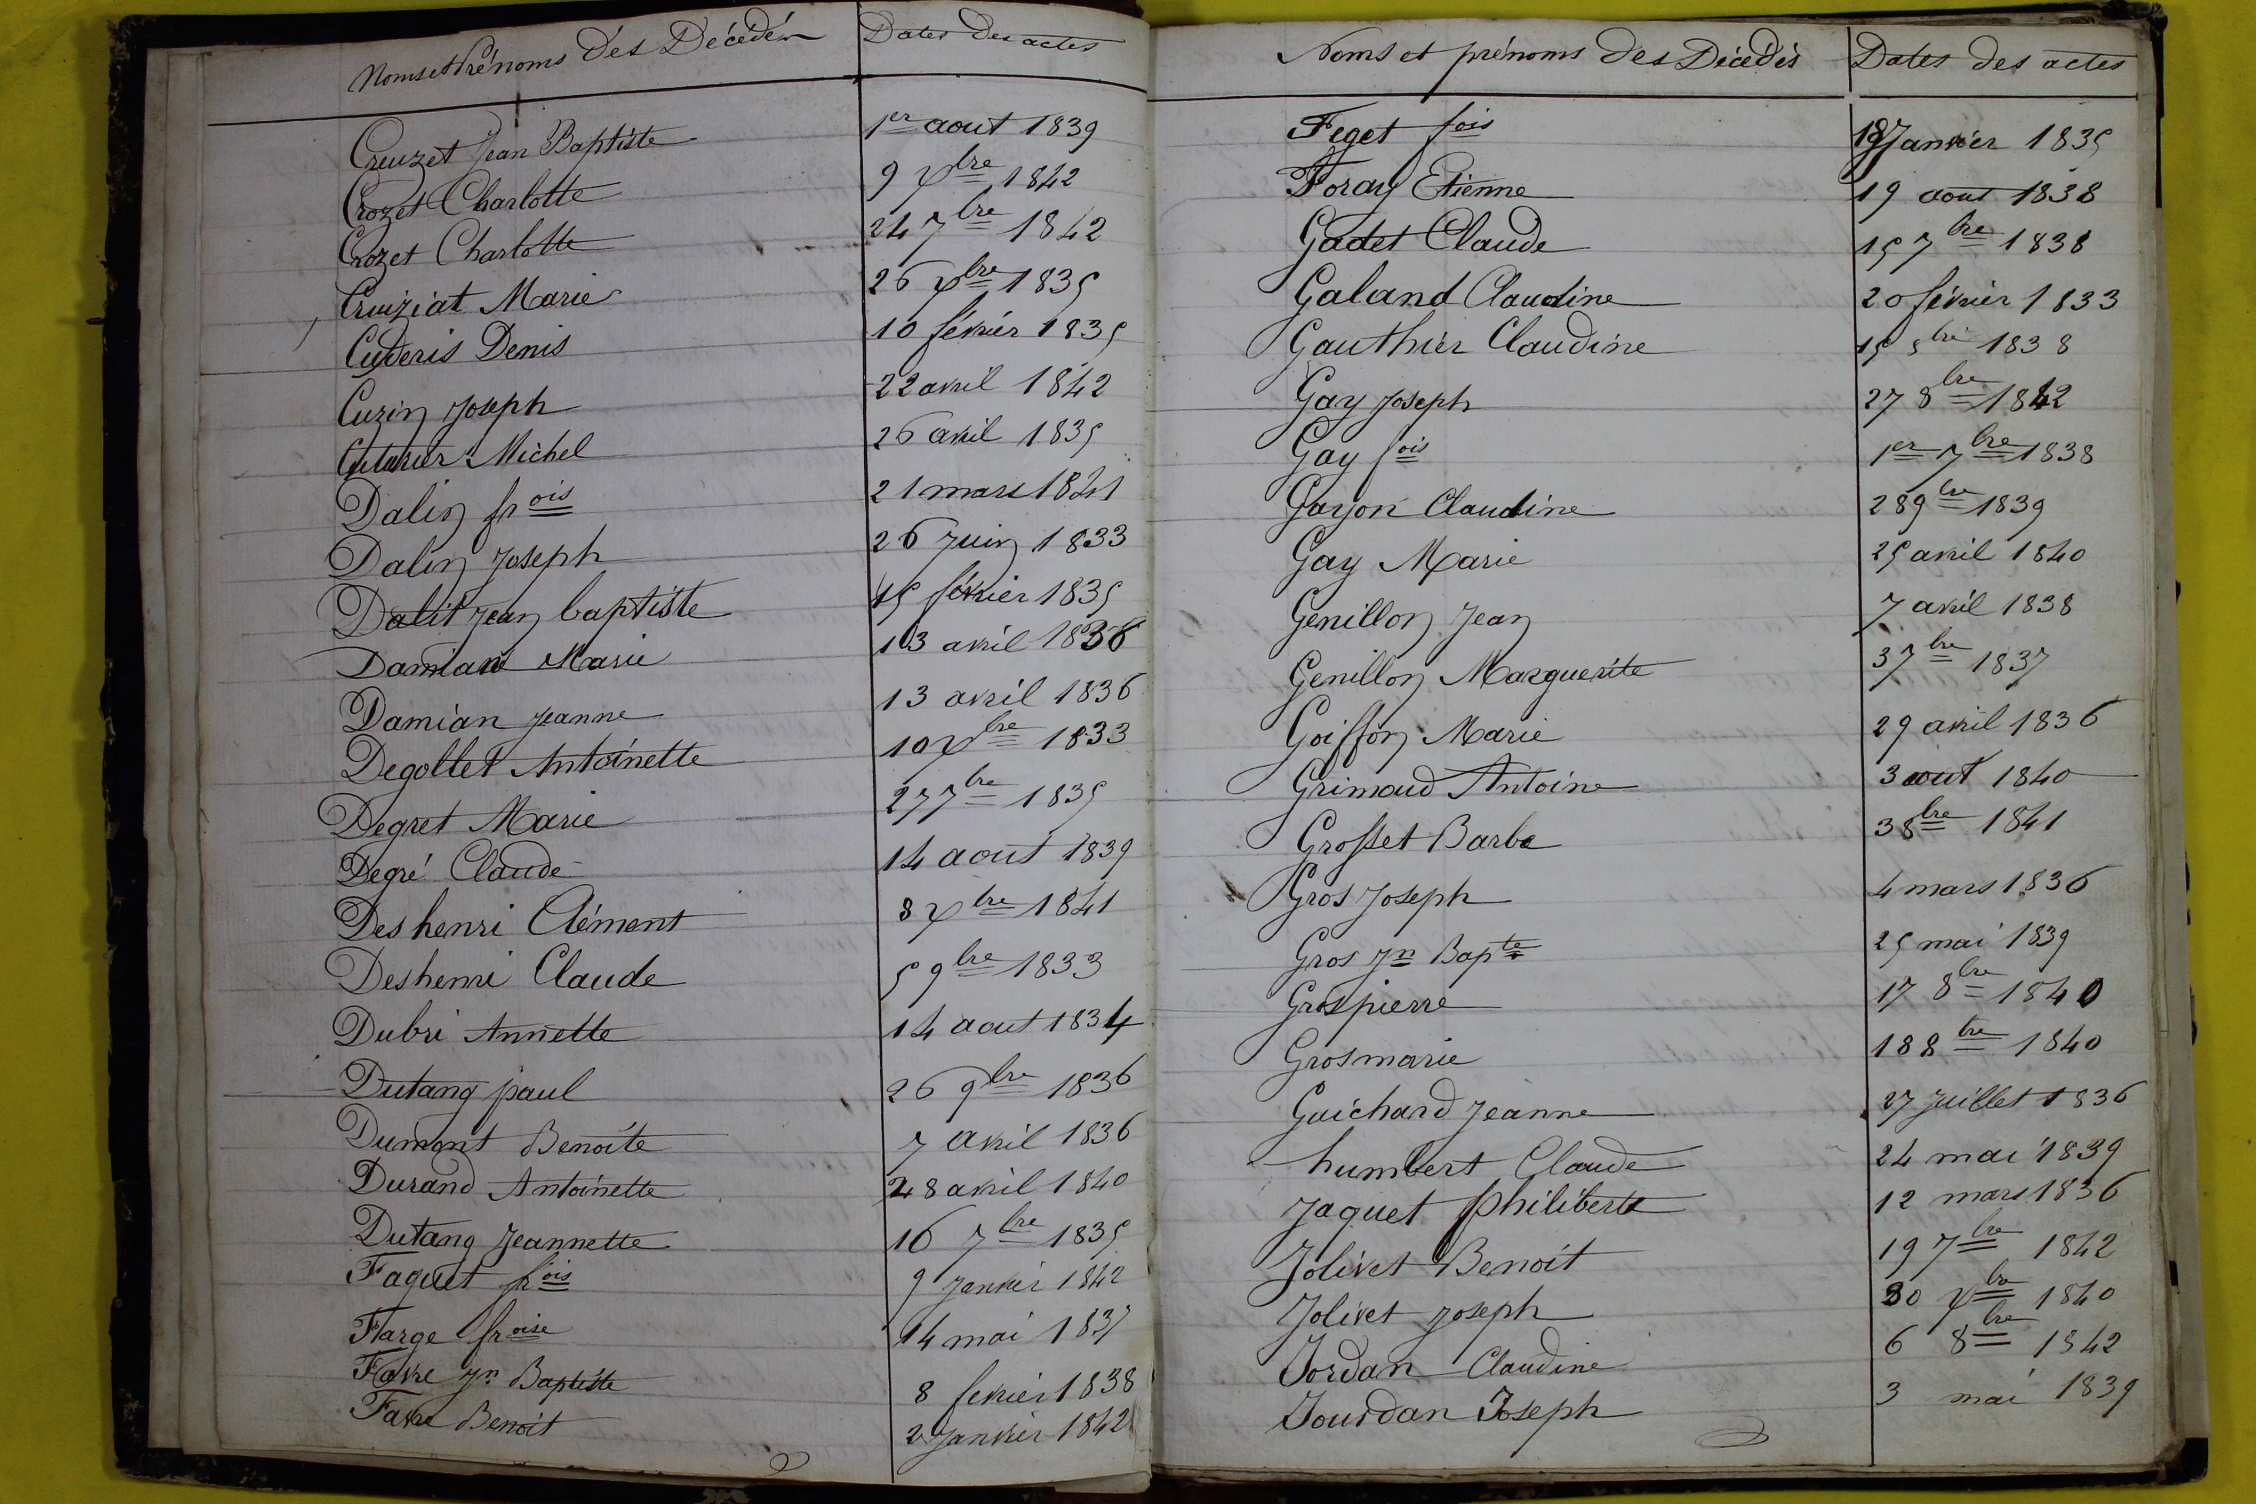 Noms et Prénoms des Décédés Dates des actes
Creuzet Jean Baptiste 1er aout 1839
Crozet Charlotte 9 Xbre 1842
Crozet Charlotte 24 7bre 1842
Cruiziat Marie 26 Xbre 1835
Cuderis Denis 10 février 1835
Cuzin Joseph 22 avril 1842
Michel 26 avril 1835
Dalin frois 21 mars 1841
Dalin Joseph 26 Juin 1833
Dalit Jean baptiste 15 février 1835
Damian Marie 13 avril 1836
Damian Jeanne 13 avril 1836
Degollet Antoinette 10 Xbre 1833
Degret Marie 27 7bre 1835
Degré Claude 14 aout 1839
Deshenri Clément 8 Xbre 1841
Deshenri Claude 5 9bre 1833
Dubri Annette 14 aout 1834
Dutang paul 26 9bre 1836
Dumont Benoite 7 avril 1836
Durand Antoinette 28 avril 1840
Dutang Jeannette 16 7bre 1835
Faquet frois 9 Janvier 1842
Farge froise 14 mai 1837
Favre Jn Baptiste 8 fevrier 1838
Favre Benoit 2 Janvier 1842
Noms et prénoms des Décédés Dates des actes
Feget fois Janvier 1835
Foray Etienne 19 aout 1838
Gadet Claude 15 7bre 1838
Galand Claudine 20 février 1833
Gauthier Claudine 15 bre 1838
Gay Joseph 27 8bre 1842
Gay fois 1er 7bre 1838
Gayon Claudine 28 9bre 1839
Gay Marie 25 avril 1840
Genillon Jean 7 avril 1838
Genillon Marguerite 3 7bre 1837
Goiffon Marie 29 avril 1836
Grimaud Antoine 3 aout 1840
Grosset Barbe 3 8bre 1841
Gros Joseph 4 mars 1836
Gros Jn Bapte 25 mai 1839
Gros pierre 17 8bre 1840
Gros marie 18 8bre 1840
Guichard Jeanne 27 Juillet 1836
humbert Claude 24 mai 1839
Jaquet philiberte 12 mars 1836
Jolivet Benoit 19 7bre 1842
Jolivet Joseph 30 Xbre 1840
Jordan Claudine 6 8bre 1842
Jourdan Joseph 3 mai 1839